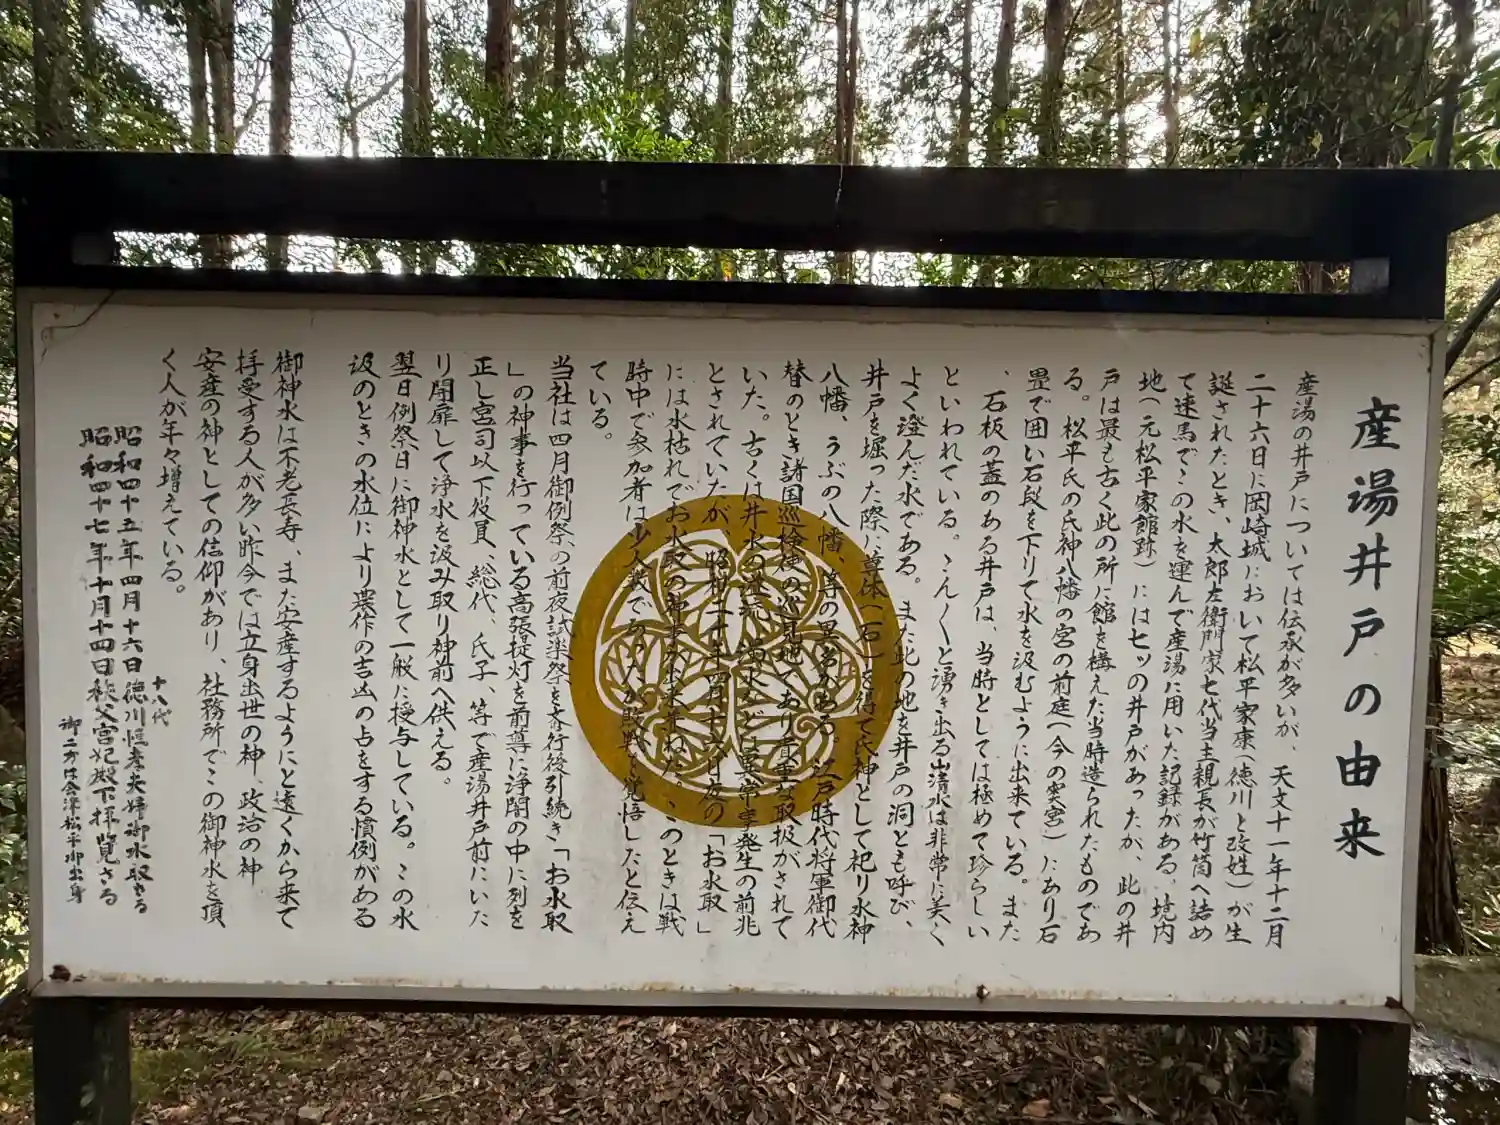 産湯井戸の由来
産湯の井戸については伝承が多いが、天文十一年十二月
二十六日に岡崎城において松平家康(徳川と改姓)が生
誕されたとき、太郎左衛門家七代当主親長が竹筒へ詰め
て速馬でこの水を運んで産湯に用いた記録がある、境内
地(元松平家館跡)には七ッの井戸があったが、此の井
戸は最も古く此の所に館を構えた当時造られたものであ
る。松平氏の氏神八幡の宮の前庭(今の奥宮)にあり石
畳で囲い石段を下りて水を汲むように出来ている。また
、石板の蓋のある井戸は、当時としては極めて珍らしい
といわれている。こんくと湧き出る山清水は非常に美く
よく澄んだ水である。また此の地を井戸の洞とも呼び、
井戸を堀った際に尊体(石)を得て氏神として祀り水神
八幡、うぶの八幡、等の異名がある。江戸時代将軍御代
替のとき諸国巡検使の巡見地であり貴重な取扱がされて
いた。古くは井水の混濁、渇水などは異常事発生の前兆
とされていたが、昭和二十年四月十六日夜の「お水取」
には水枯れでお水取の神事が出来兼ねた、このときは戦
時中で参加者は少人数であったが敗戦を覚悟したと伝え
ている。
当社は四月御例祭の前夜試楽祭を斎行後引続き「お水取
」の神事を行っている高張提灯を前導に浄闇の中に列を
正し宮司以下役員、総代、氏子、等で産湯井戸前にいた
り開扉して浄水を汲み取り神前へ供える。
翌日例祭日に御神水として一般に授与している。この水
汲のときの水位により農作の吉凶の占をする慣例がある
御神水は不老長寿、また安産するようにと遠くから来て
拝受する人が多い昨今では立身出世の神、政治の神
安産の神としての信仰があり、社務所でこの御神水を頂
く人が年々増えている。
十八代
昭和四十五年四月十六日徳川恒孝夫婦御水取さる
昭和四十七年十月十四日秩父宮妃殿下拝覧さる
御二方は会津松平御出身